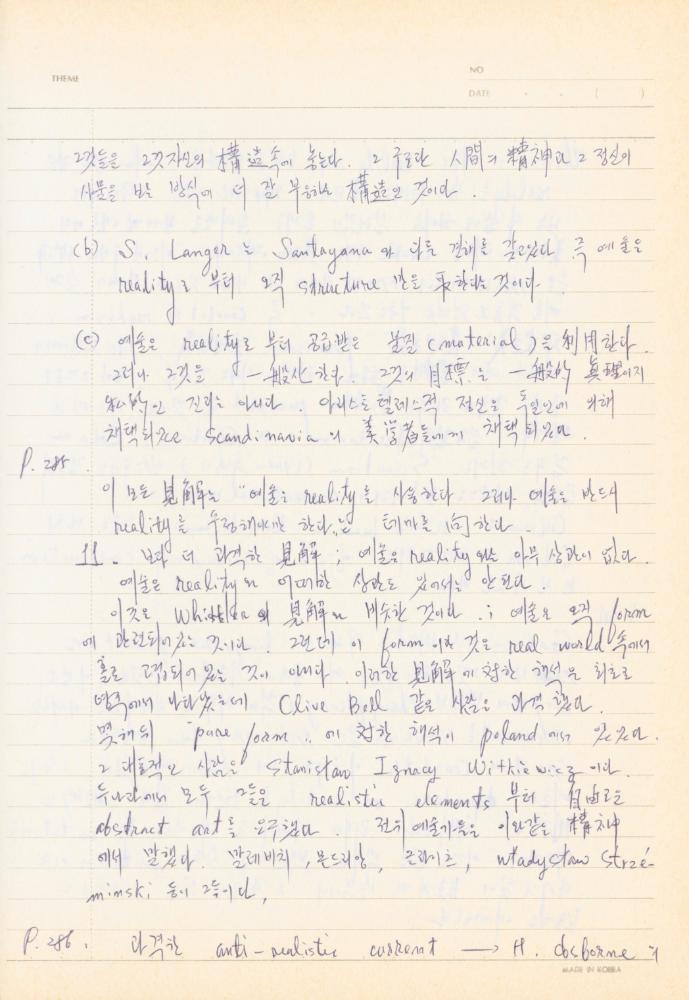 THEME
NO
DATE . . ( )
그것들을 그것자신의 構造속에 놓는다. 그 구조란 人間의 精神과 그 정신이
사물을 보는 방식에 더 잘 부응하는 構造인 것이다.
(b) S. Langer는 Santayana와 다른 견해를 갖고있다. 즉 예술은
reality로 부터 오직 structure만을 取한다는 것이다.
(c) 예술은 reality로 부터 공급받은 물질(material)을 利用한다.
그러나 그것을 一般化한다. 그것의 目標는 一般的 眞理이지
私的인 진리는 아니다. 아리스토텔레스적 정신은 독일인에 의해
채택되었고 Scandinavia의 美学者들에게 채택되었다.
P. 285
이 모든 見解는 "예술은 reality를 사용한다 그러나 예술은 반드시
reality를 하여야만 한다."는 테마를 向한다
11. 보다 더 과격한 見解; 예술은 reality와는 아무 상관이 없다.
예술은 reality와 어떠한 상관도 있어서는 안된다.
이것은 Whistler의 見解와 비슷한 것이다.; 예술은 오직 form
에 관련되어있는 것이다. 그런데 이 form이란 것은 real world속에서
홀로 되어 있는 것이 아니다. 이러한 見解에 対한 해석은 최초로
영국에서 나타났는데 Clive Bell 같은 사람은 과격했다.
몇해뒤 "pure form"에 対한 해석이 poland에서 있었다.
그 대표적인 사람은 Stanistaw Ignacy Witkiewicz이다.
두나라에서 모두 그들은 realistic elements부터 自由로운
abstract art를 요구했다. 전위예술가들은 이와같은 精神
에서 말했다. 말레비치, 몬드리안, wtadystaw Strzé-
minski 등이 그들이다.
P. 286. 과격한 anti-realistic current → H. Osborne의
MADE IN KOREA